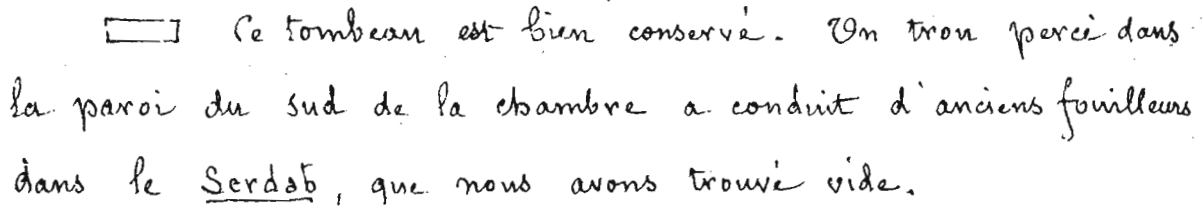 Ce tombeau est bien conservé. Un trou percé dans
la paroi du sud de la chambre a conduit d'anciens fouilleurs
dans le Serdab, que nous avons trouvé vide.